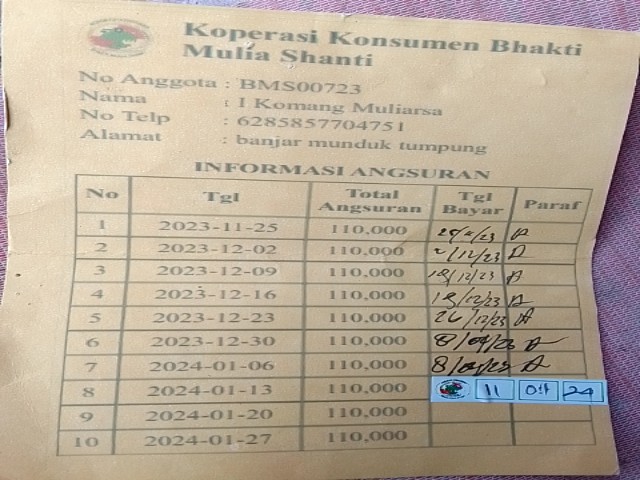 Koperasi Konsumen Bhakti
Mulia Shanti
No Anggota : BMS00723
Nama : I Komang Muliarsa
No Telp : 6285857704751
Alamat : banjar munduk tumpung
INFORMASI ANGSURAN
No Tgl Total Angsuran Tgl Bayar Paraf
1 2023-11-25 110,000
2 2023-12-02 110,000 2/12/23
3 2023-12-09 110,000
4 2023-12-16 110,000 19/12/23
5 2023-12-23 110,000 26/12/23
6 2023-12-30 110,000
7 2024-01-06 110,000
8 2024-01-13 110,000 11 24
9 2024-01-20 110,000
10 2024-01-27 110,000